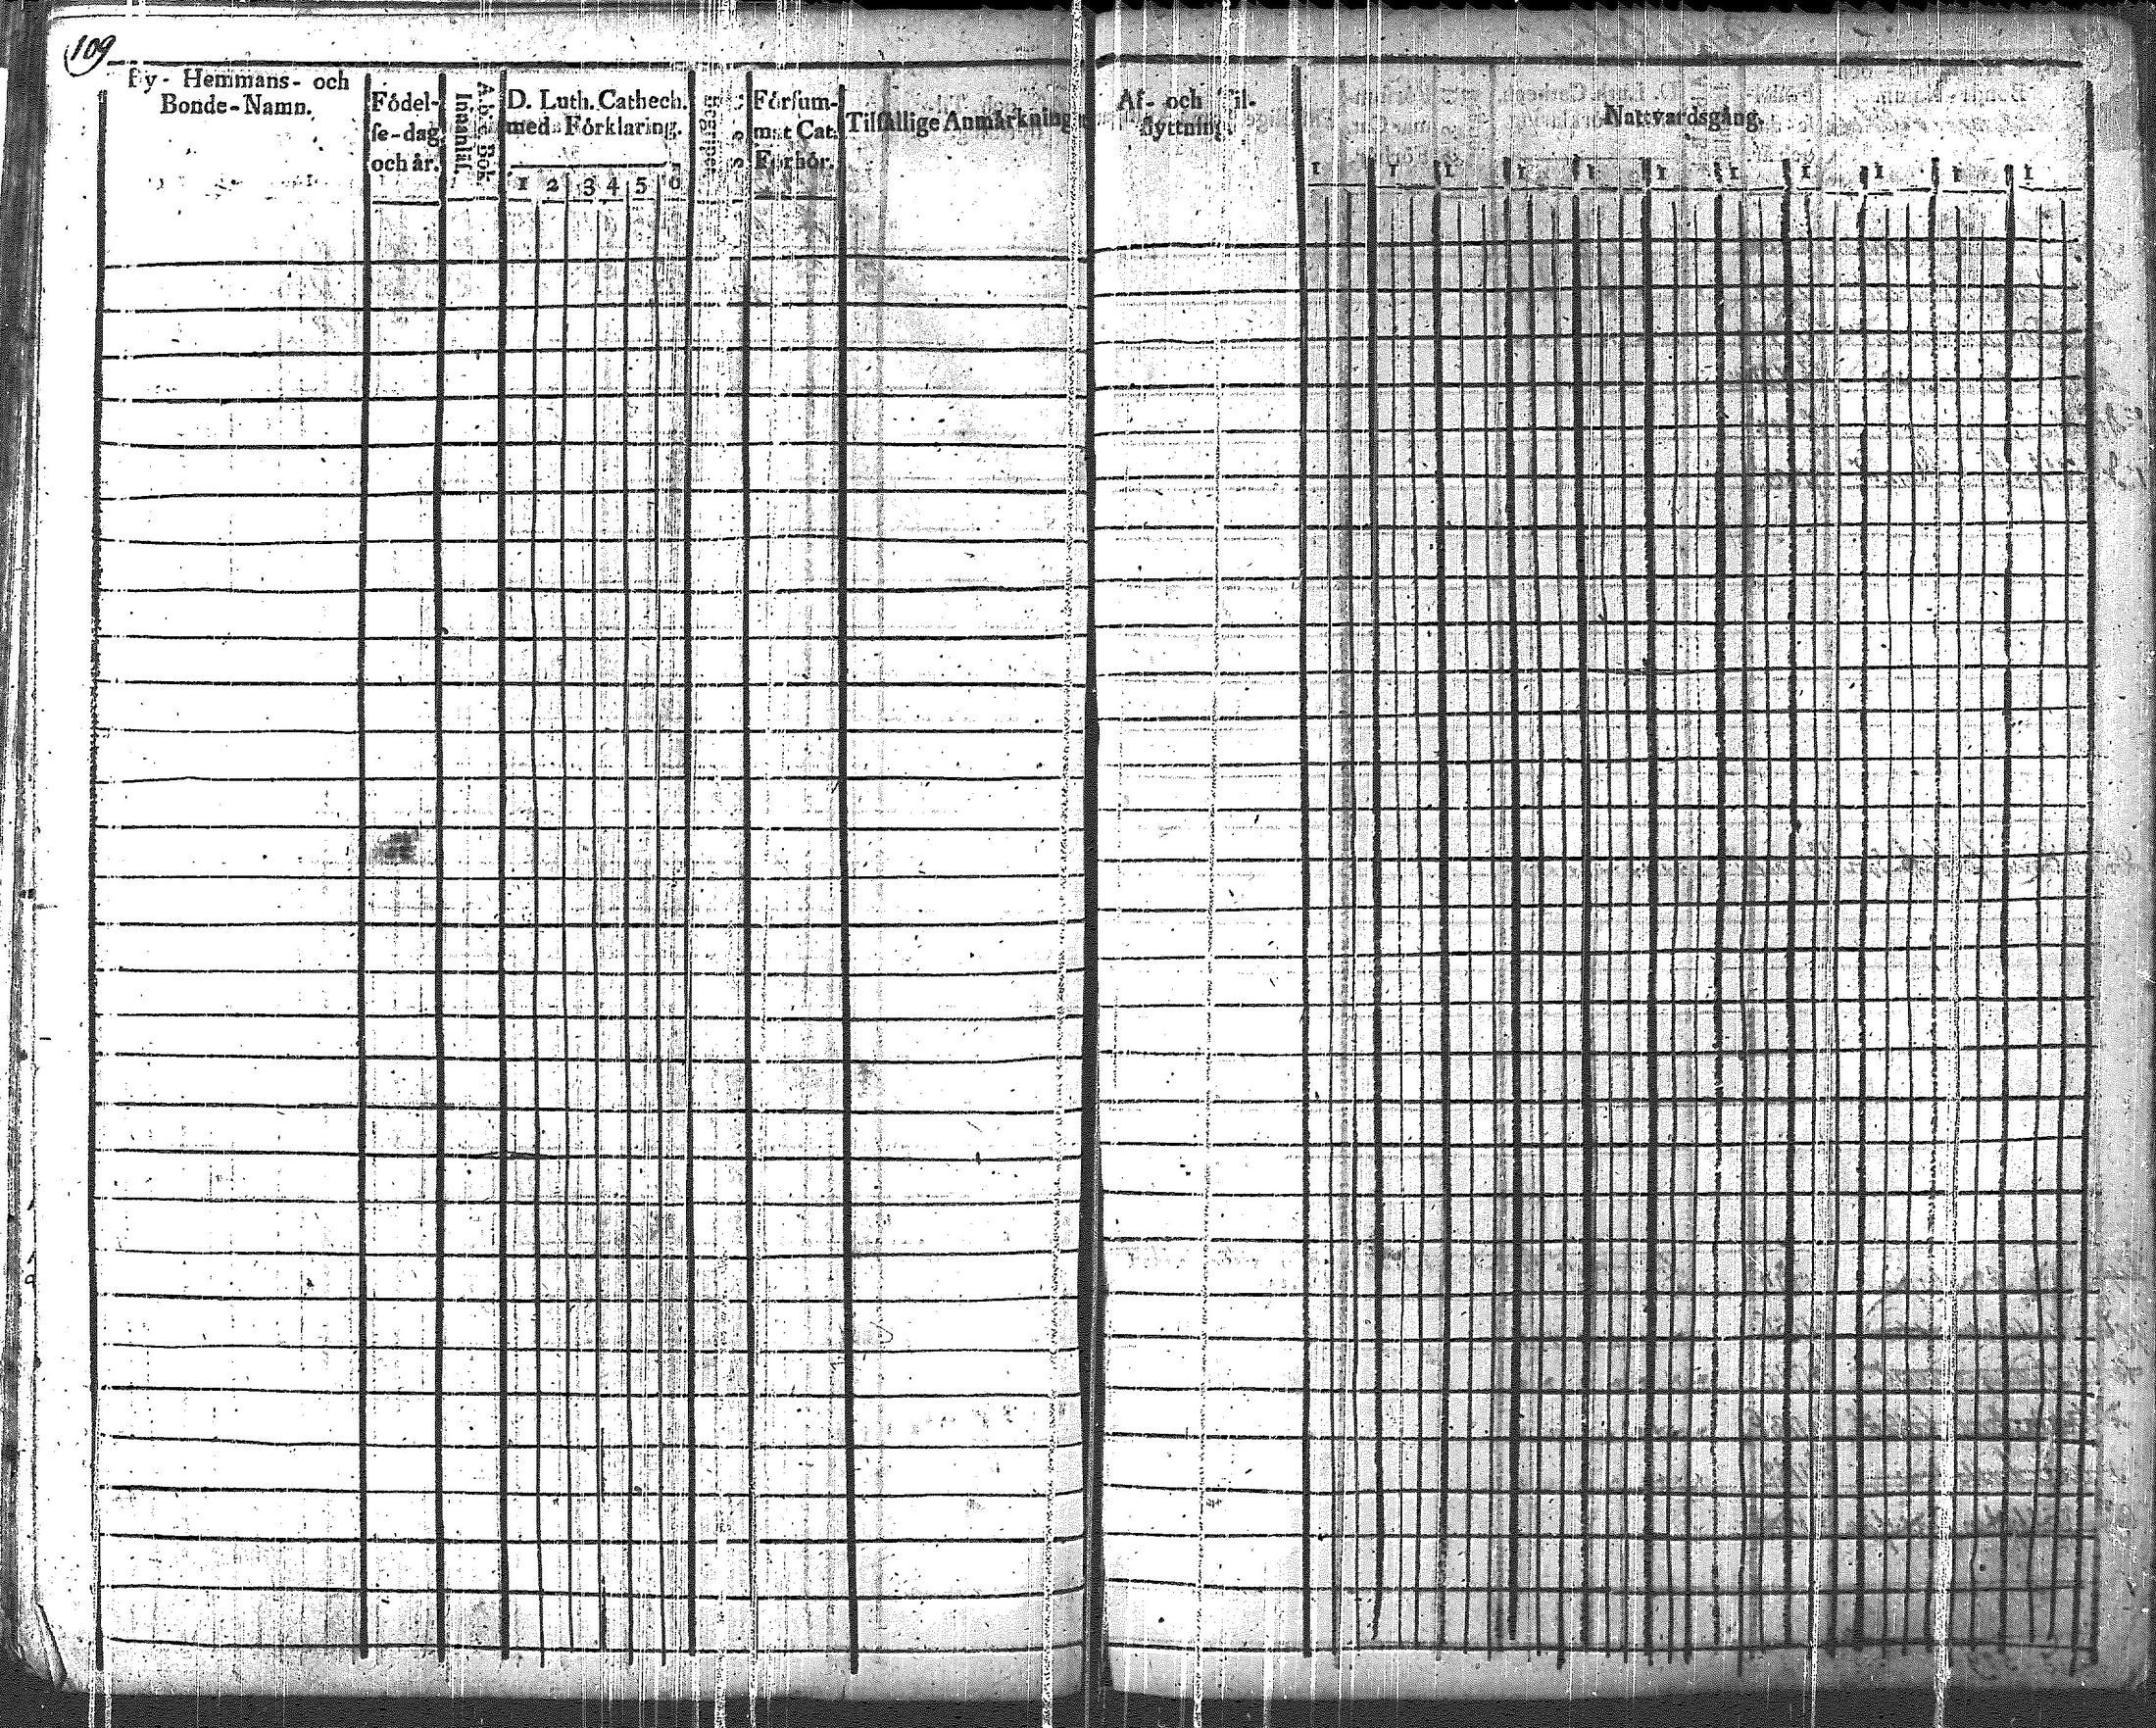 109
By- Hemmans- och
Bonde-Namn.
Födel-
se-dag
och år.
A. b. c. Bok.
Innanläs.
D. Luth. Cathech.
med Förklaring.
1 2 3 4 5 6
Försum-
mat Cat.
Förhör.
Tilfällige Anmärkningar
Af- och Til-
flyttning.
Nattvardsgång.
1 1 1 1 1 1 1 1 1 1 1